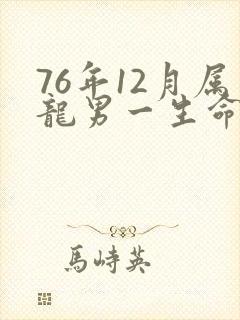 76年12月属
龍男一生命
馬峙英